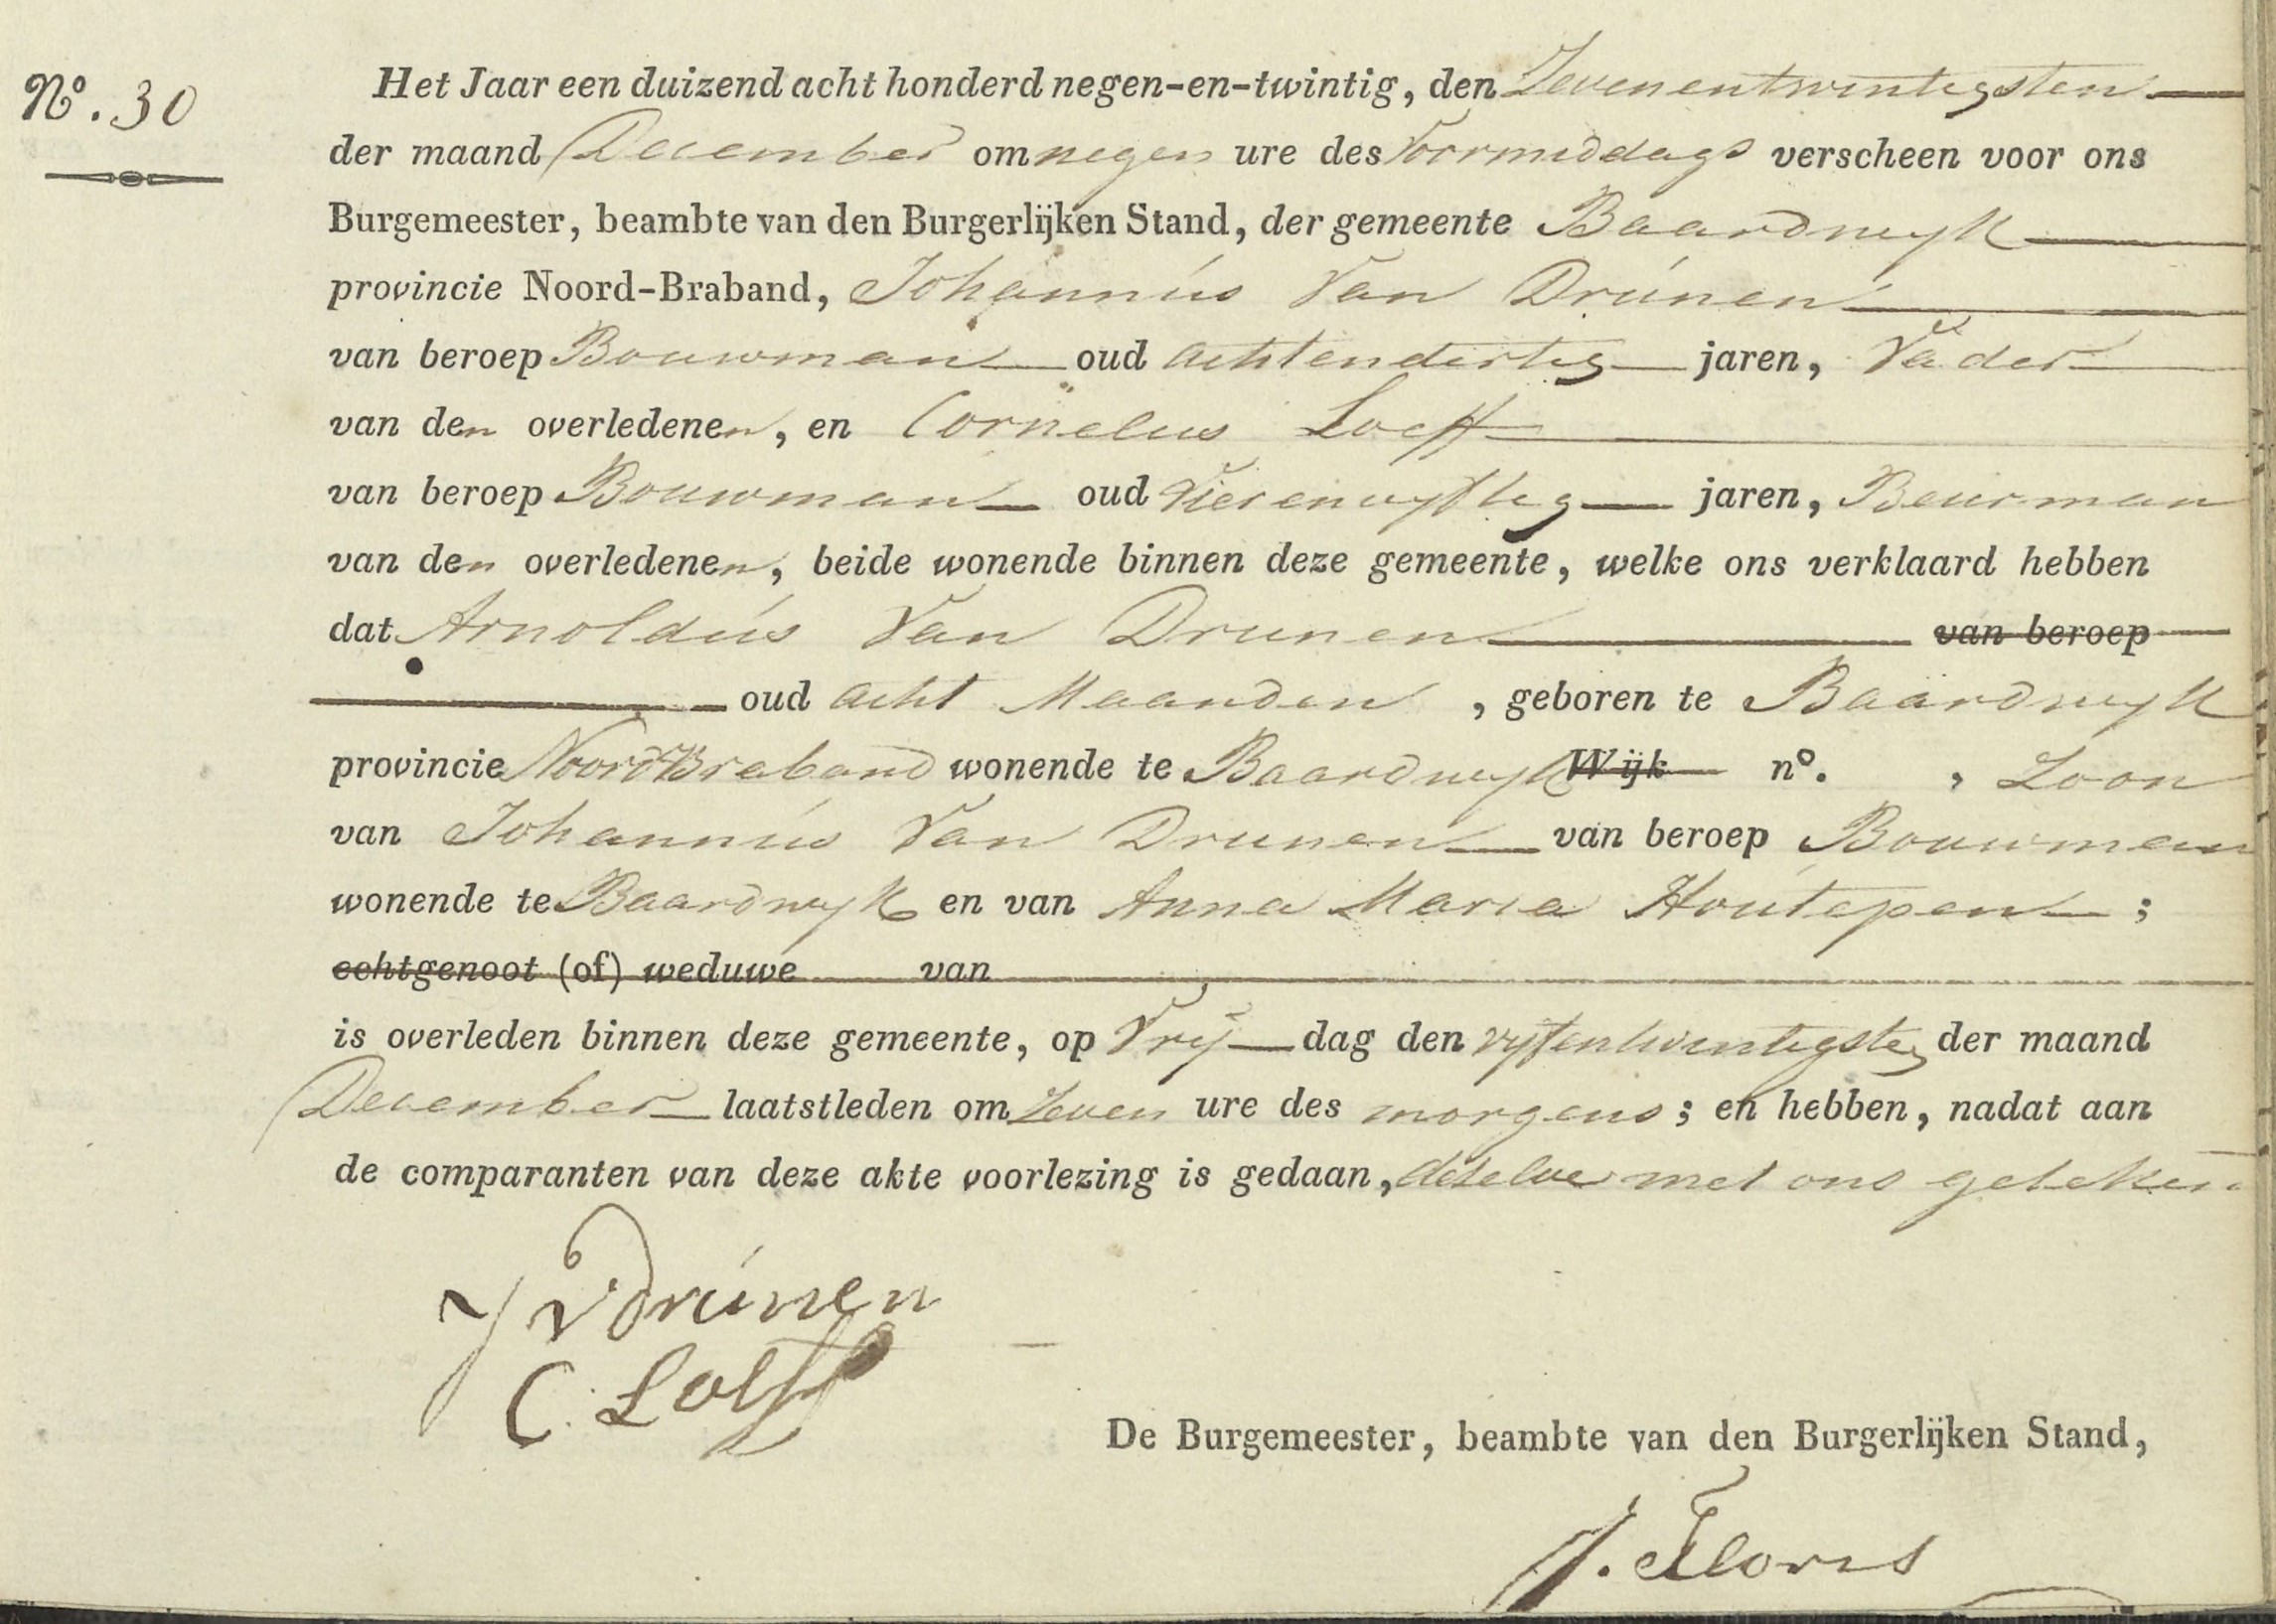 N°. 30
Het Jaar een duizend acht honderd negen-en-twintig, den Zevenentwintigsten
der maand December om negen ure des Voormiddags verscheen voor ons
Burgemeester, beambte van den Burgerlijken Stand, der gemeente Baardwyk
provincie Noord-Braband, Johannis Van Drúnen
van beroep Bouwman oud achtendertig jaren, Vader
van den overledenen, en Cornelus Loeff
van beroep Bouwman oud Vierenvyftig jaren, Beurman
van den overledenen, beide wonende binnen deze gemeente, welke ons verklaard hebben
dat Arnoldús Van Drunen van beroep
oud acht Maanden, geboren te Baardwyk
provincie Noord Braband wonende te Baardwyk Wijk n°. , Zoon
van Johannis Van Drunen van beroep Bouwman
wonende te Baardwyk en van Anna Maria Houtepen;
echtgenoot (of) weduwe van
is overleden binnen deze gemeente, op Vrij dag den vyfentwintigsten der maand
December laatstleden om Zeven ure des morgens; en hebben, nadat aan
de comparanten van deze akte voorlezing is gedaan, dezelve met ons geteken
J V Drúnen
C. Loeff
De Burgemeester, beambte van den Burgerlijken Stand,
J. Floris